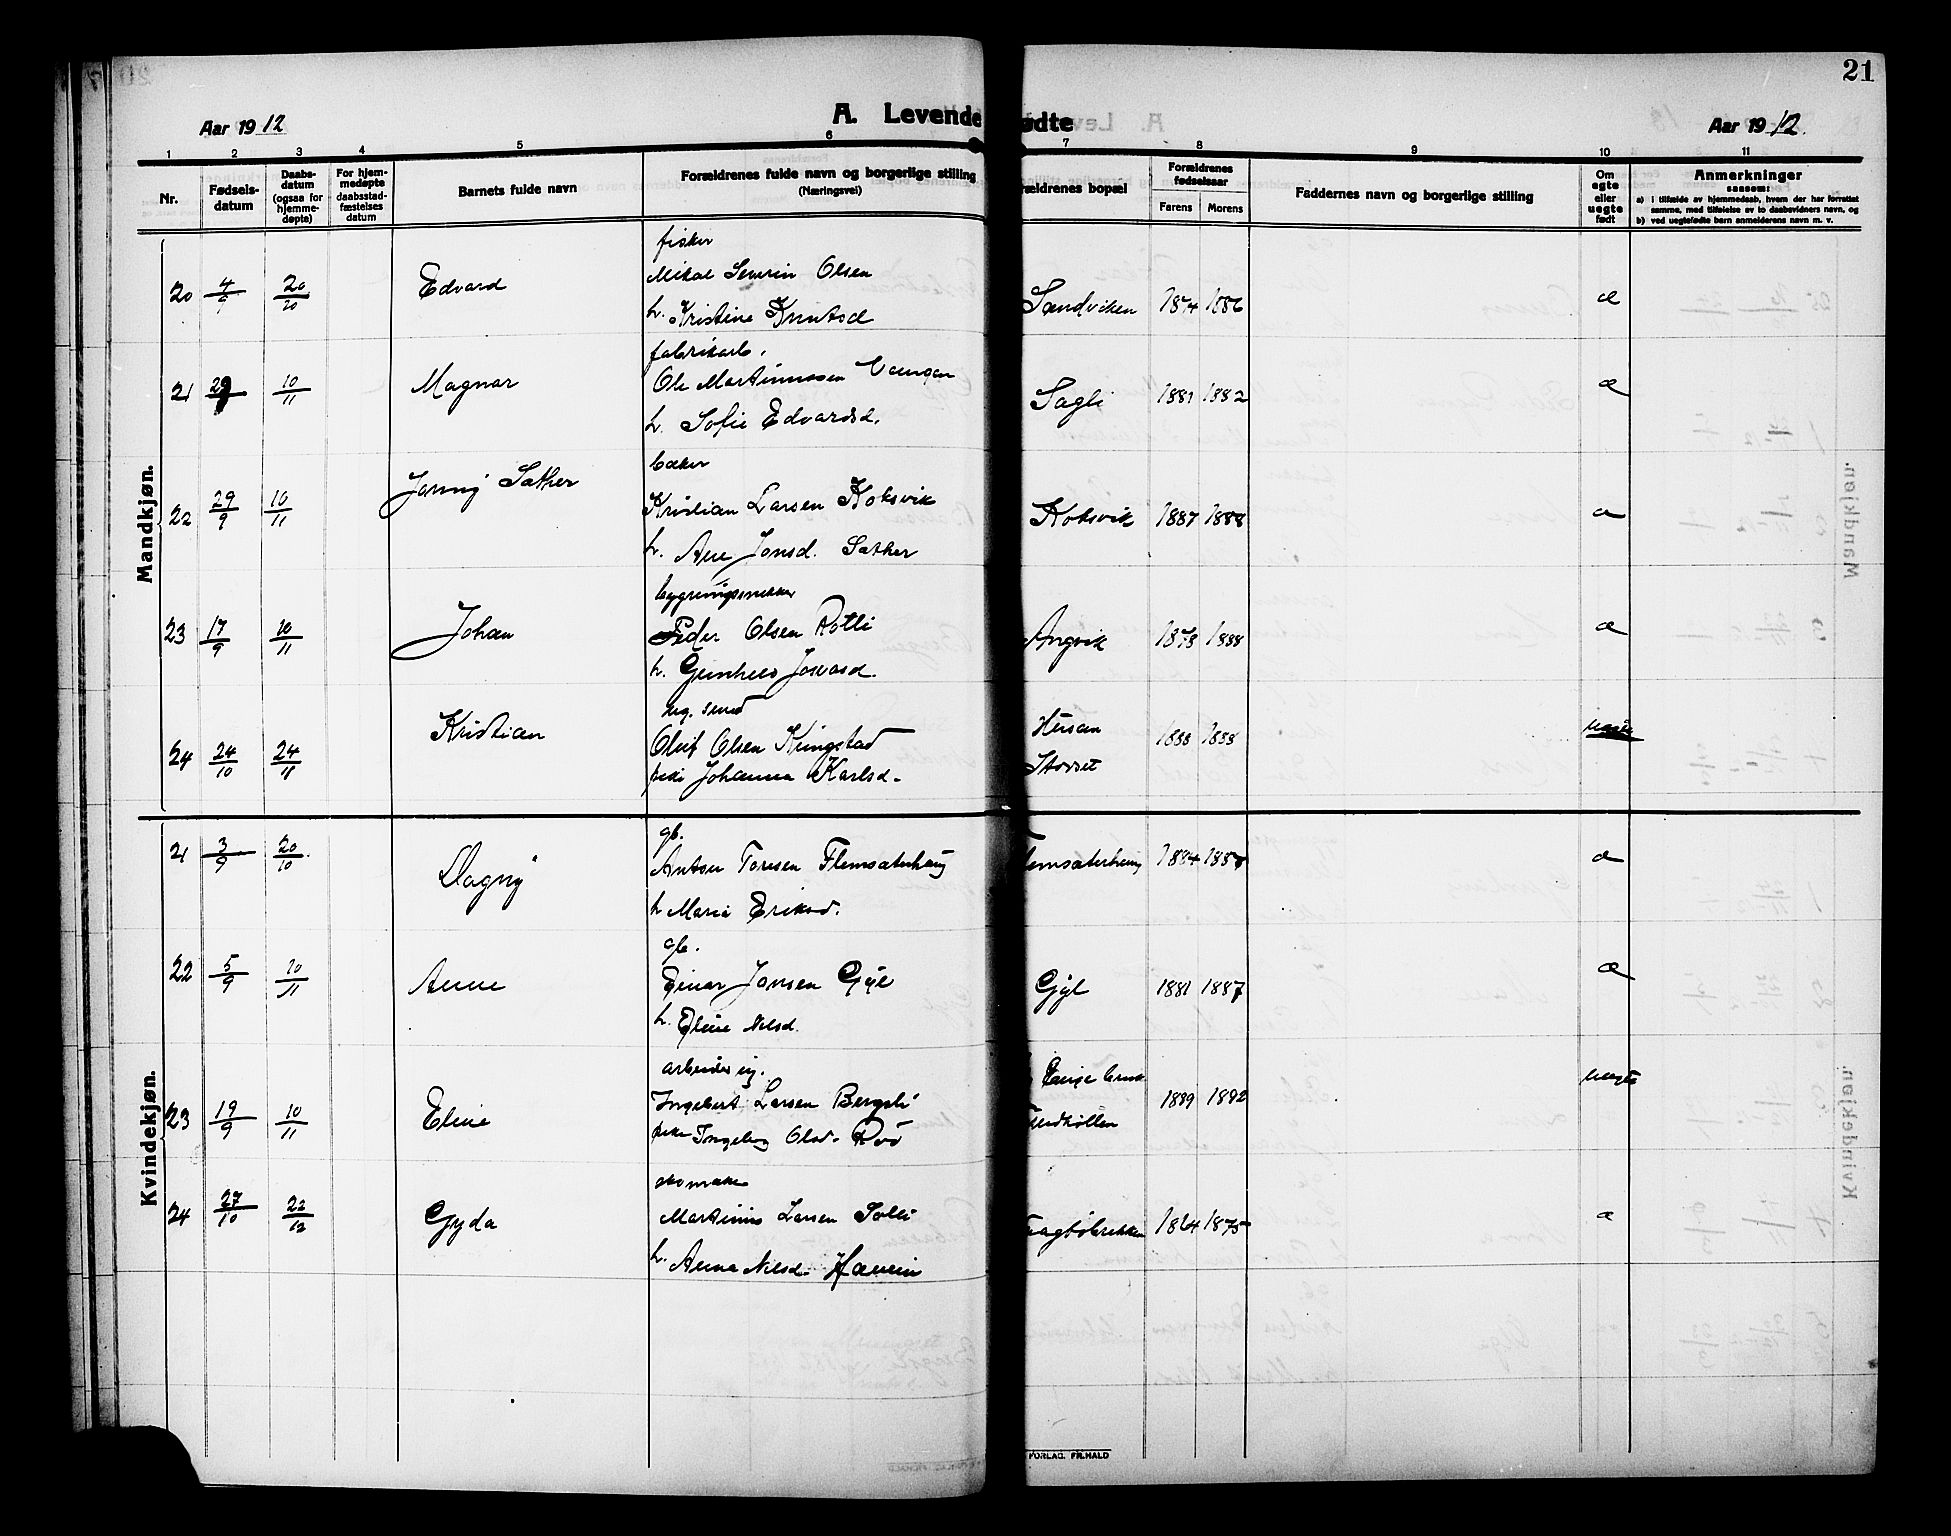 21
Aar 1912 A. Levende
ødte Aar 1912.
1 2 3 4 5 6 7 8 9 10 11
Nr.
Fødsels-
datum
Daabs-
datum
(ogsaa for
hjemme-
døpte)
For hjem-
medøpte
daabsstad-
fæstelses
datum
Barnets fulde navn
Forældrenes fulde navn og borgerlige stilling
(Næringsvei)
rældrenes bopæl
Forældrenes
fødselsaar
Farens Morens
Faddernes navn og borgerlige stilling
Om
egte
eller
uegte
født
Anmerkninger
saasom:
a) i tilfælde av hjemmedaab, hvem der har forrettet
samme, med tilføielse av to daabsvidners navn, og
b) ved uegtefødte børn anmelderens navn m. v.
Mandkjøn.
fisker
20 4/9 20/10 Edvard Mikal Severin Olsen Sandviken 1874 1886 æ
h. Kristine Knutsd
fabrikarb.
21 29/9 10/11 Magnar Ole Martinussen Vaagan Sagli 1881 1882 æ
h. Sofie Edvardsd.
baker
22 29/9 10/11 Jonny Sæther Kristian Larsen Koksvik Koksvik 1887 1888 æ
h. Ane Jonsd. Sæther
bygningssnekker
23 17/9 10/11 Johan Peder Olsen Rotli Angvik 1878 1888 æ
h. Gunhild
24 24/10 24/11 Kristian Oluf Olsen Kringstad 1888 1888 uegte
pike Johanna Karlsd. Storset
Kvindekjøn.
gb.
21 3/9 20/10 Dagny Anton Toresen Flemsæterhaug lemsæterhaug 1884 1887 æ
h Marie Eriksd.
gb.
22 5/9 10/11 Anne Einar Jonsen Gyl Gyl 1881 1887 æ
h. Eline Nilsd.
arbeider ug.
23 19/9 10/11 Eline Ingebert Larsen Bergsli 1889 1892 uegte
pike Ingeborg Olsd. Rød
skomaker
24 27/10 22/12 Gyda Martinus Larsen Solli 1864 1875 æ
h. Anna Nilsd.
FORLAG. FR. HALD